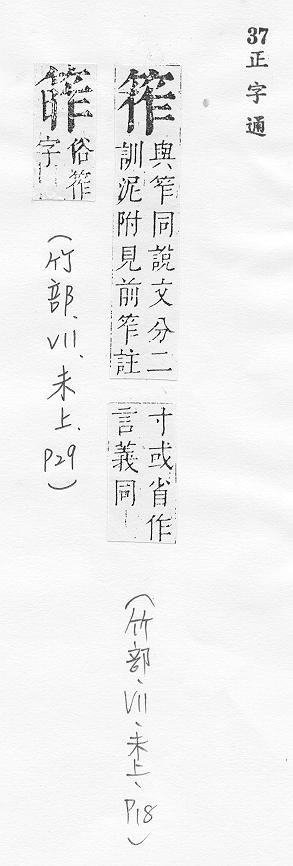 37正字通
筰
與笮同說文分二
訓泥附見前笮註
寸或省作
言義同
(竹部、VII、未上、P18)
俗筰
字
(竹部、VII、未上、P29)